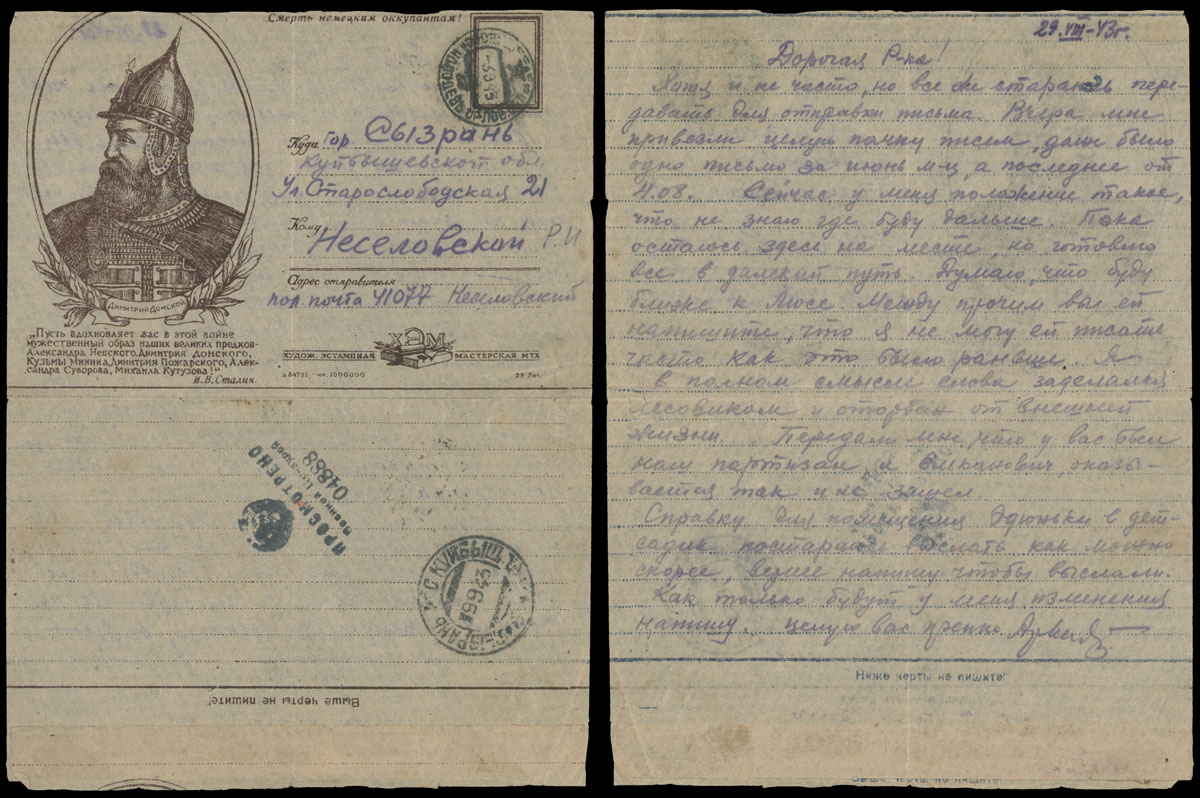 Смерть немецким оккупантам!
Куда гор. Сызрань
Куйбышевской обл
Ул Старослободская 21
Кому
Неселовской Р.И
Адрес отправителя
пол. почта 41077 Неселовский
Димитрий Донской
„Пусть вдохновляет вас в этой войне
мужественный образ наших великих предков-
Александра Невского, Димитрия Донского,
Кузьмы Минина, Димитрия Пожарского, Алек-
сандра Суворова, Михаила Кутузова!"
И.В.Сталин.
ХЭМ
ХУДОЖ. ЭСТАМПНАЯ МАСТЕРСКАЯ МТХ
ПРОСМОТРЕНО
Военной Цензурой
04888
СЫЗРАНЬ КУЙБЫШ.
9 9 43
Выше черты не пишите!
29.VIII-43г.
Дорогая Р-ка!
Хотя и не часто, но все же стараюсь пере-
давать для отправки письма. Вчера мне
привезли целую пачку писем, даже было
одно письмо за июнь м-ц, а последнее от
4.08. Сейчас у меня положение такое,
что не знаю где буду дальше. Пока
осталось здесь на месте, но готовлю
все в далекий путь. Думаю, что буду
ближе к Люсе. Между прочим вы ей
напишите, что я не могу ей писать
часто как это было раньше. Я
в полном смысле слова заделался
лесовиком и оторван от внешней
жизни. Передали мне, что у вас был
наш партизан, а оказы-
вается так и не зашел.
Справку для помещения Эдюньки в дет-
садик постараюсь выслать как можно
скорее, вернее напишу чтобы выслали.
Как только будут у меня изменения
напишу. Целую вас крепко
Ниже черты не пишите!
Выше черты не пишите!